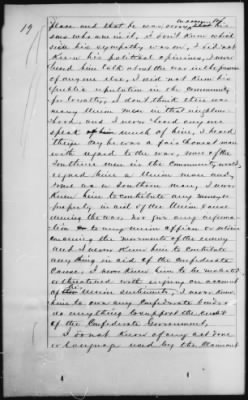 19
place and that he was
sons who are in it, I don't know which
side his sympathy was on, I did not
know his political opinions, I never
heard him talk about the war with or
of anyone else, I did not know his
public reputation in the community
for loyalty, I don't think there was
many Union men in that neighbor
hood, and I never heard any one
speak of him much of him, I heard
them say he was a fair honest man
with regard to the war, some of the
Southern men in the community
regard him a Union man and
some as a Southern man, I never
knew him to contribute any money or
property in aid of the Union cause
during the war nor give any informa
tion to any Union officer or soldier
concerning the movements of the enemy
and I never knew him to contribute
any thing in aid of the Confederate
Cause, I never knew him to be molested
or threatened with injury on account
of his Union sentiments, I never knew
him to own any Confederate bonds or
do anything to support the credit
of the Confederate Government,
I do not know of any act done
or language used by the Claimant